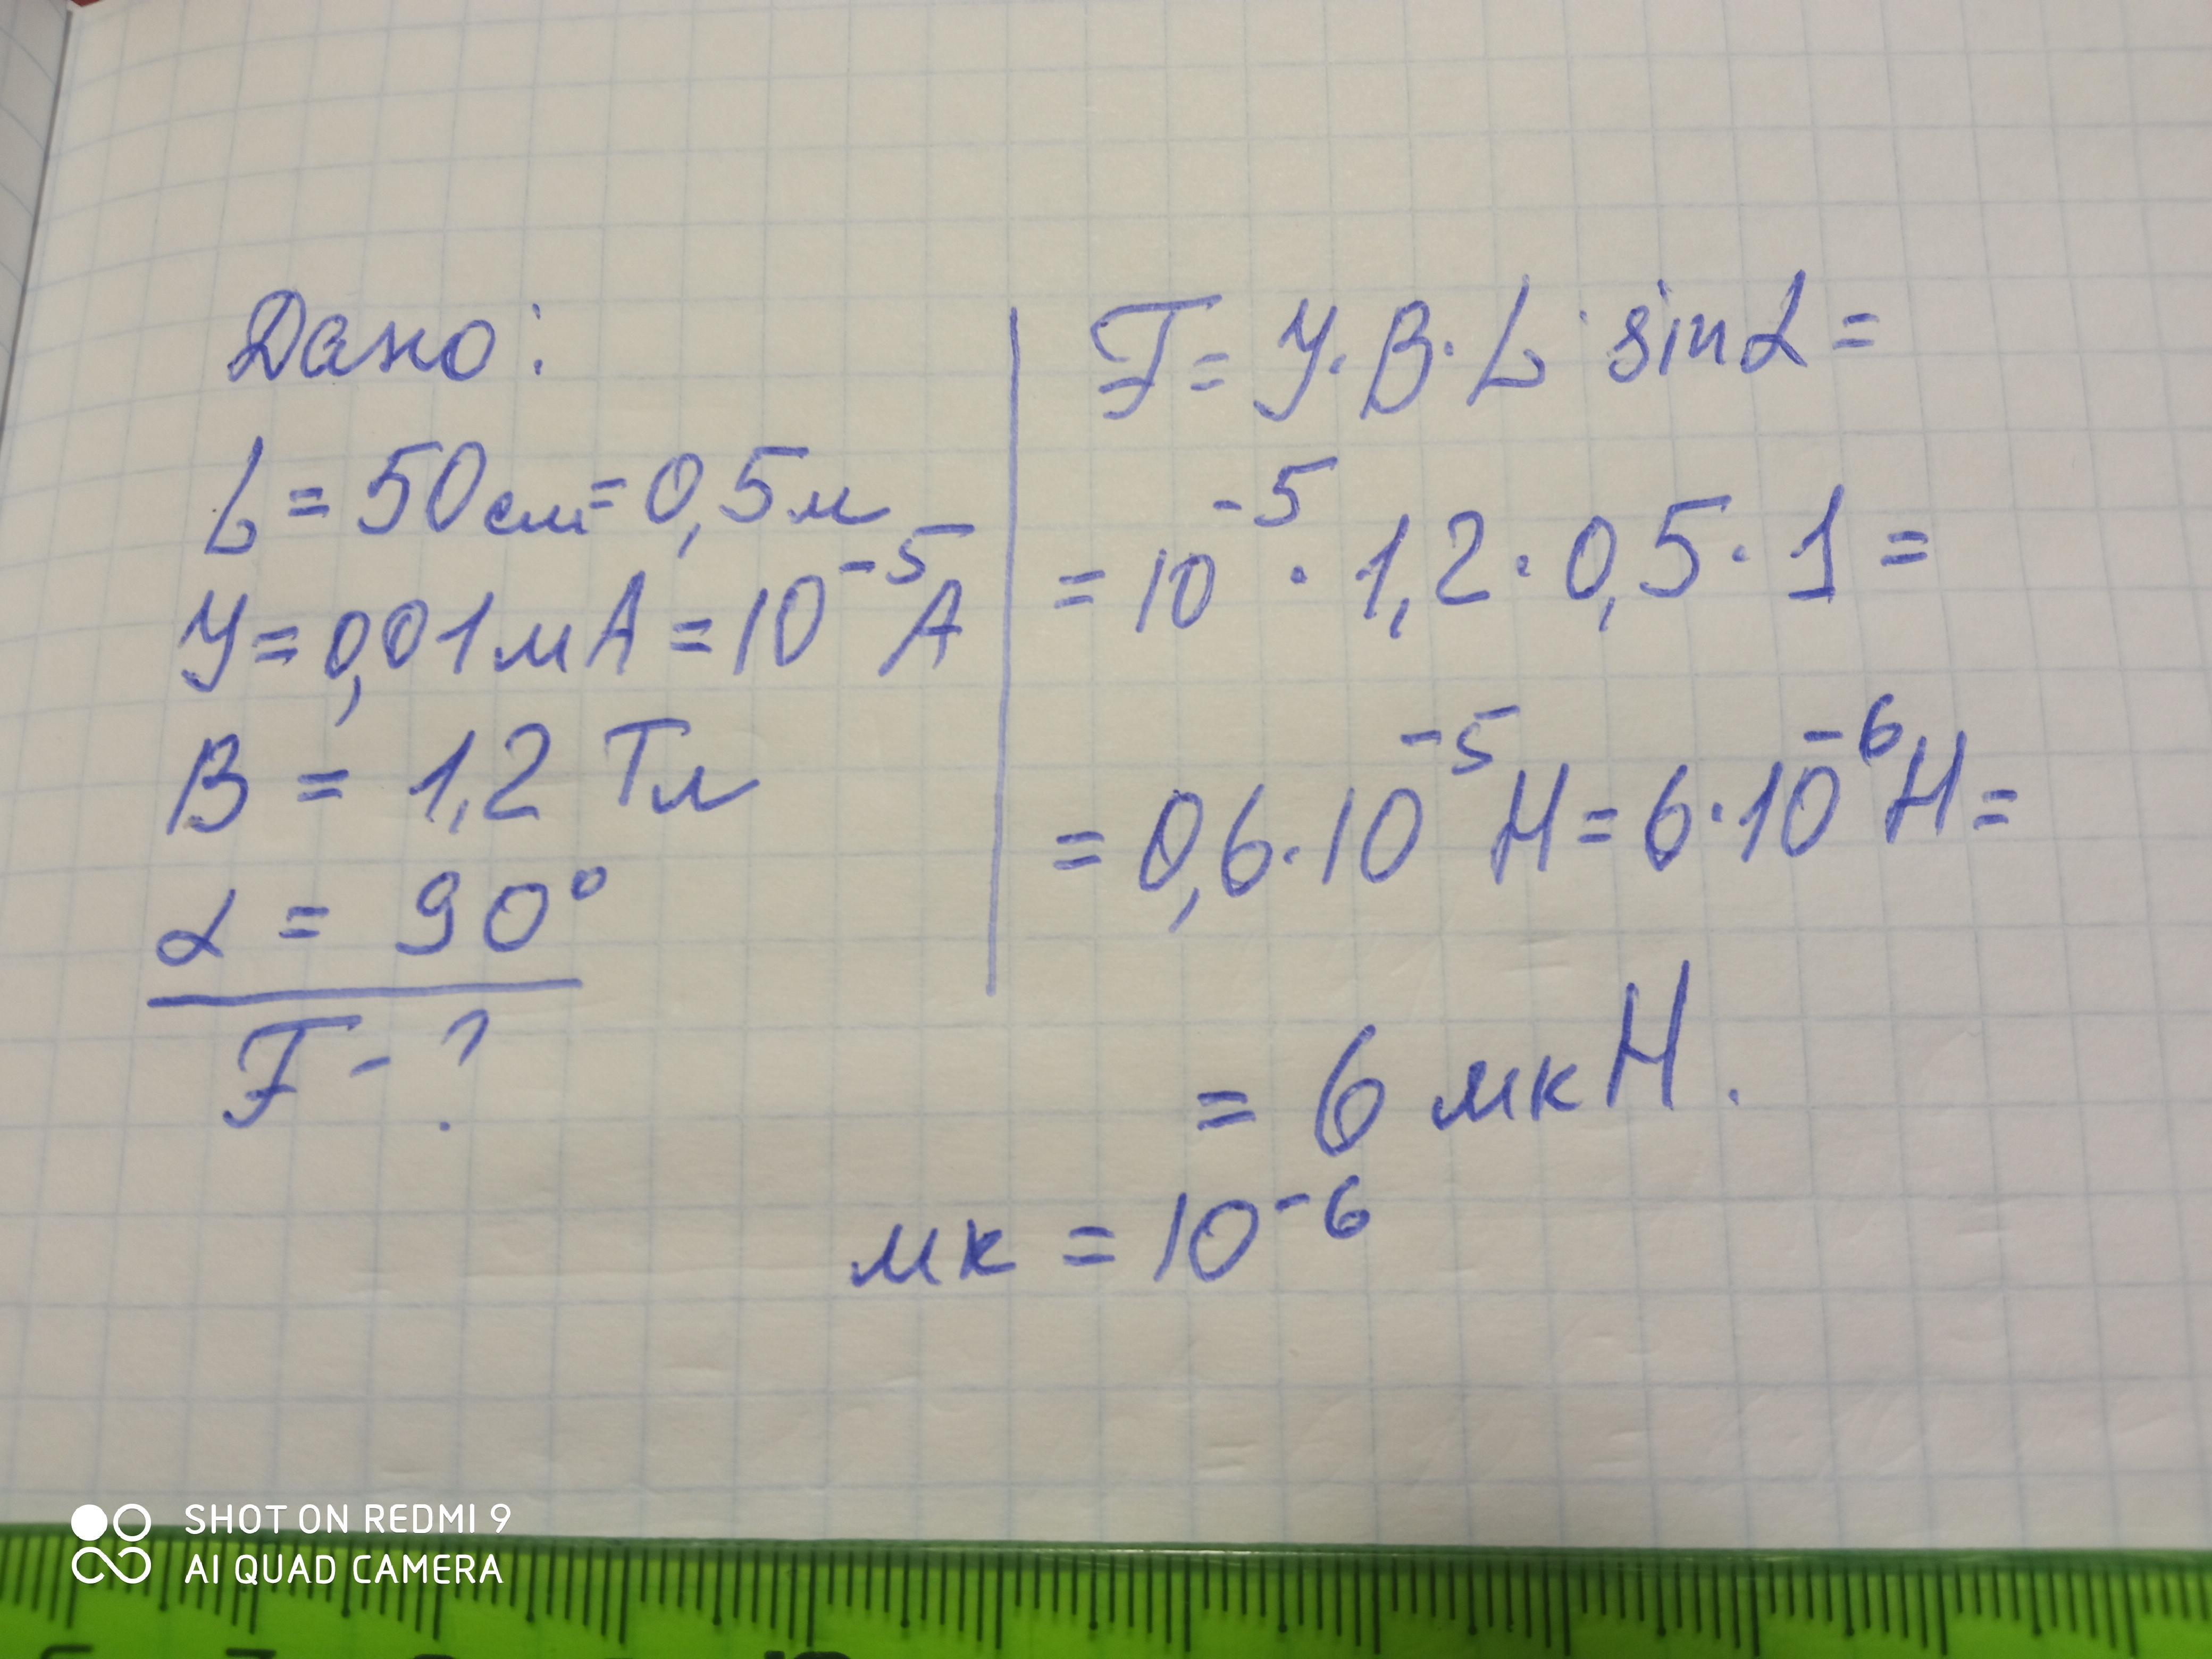 Дано:
L = 50 см = 0,5 м
У = 0,01 мА = 10⁻⁵ А
В = 1,2 Тл
α = 90°
F - ?
F = У · В · L · sin α =
= 10⁻⁵ · 1,2 · 0,5 · 1 =
= 0,6 · 10⁻⁵ Н = 6 · 10⁻⁶ Н =
= 6 мкН.
мк = 10⁻⁶
SHOT ON REDMI 9
AI QUAD CAMERA